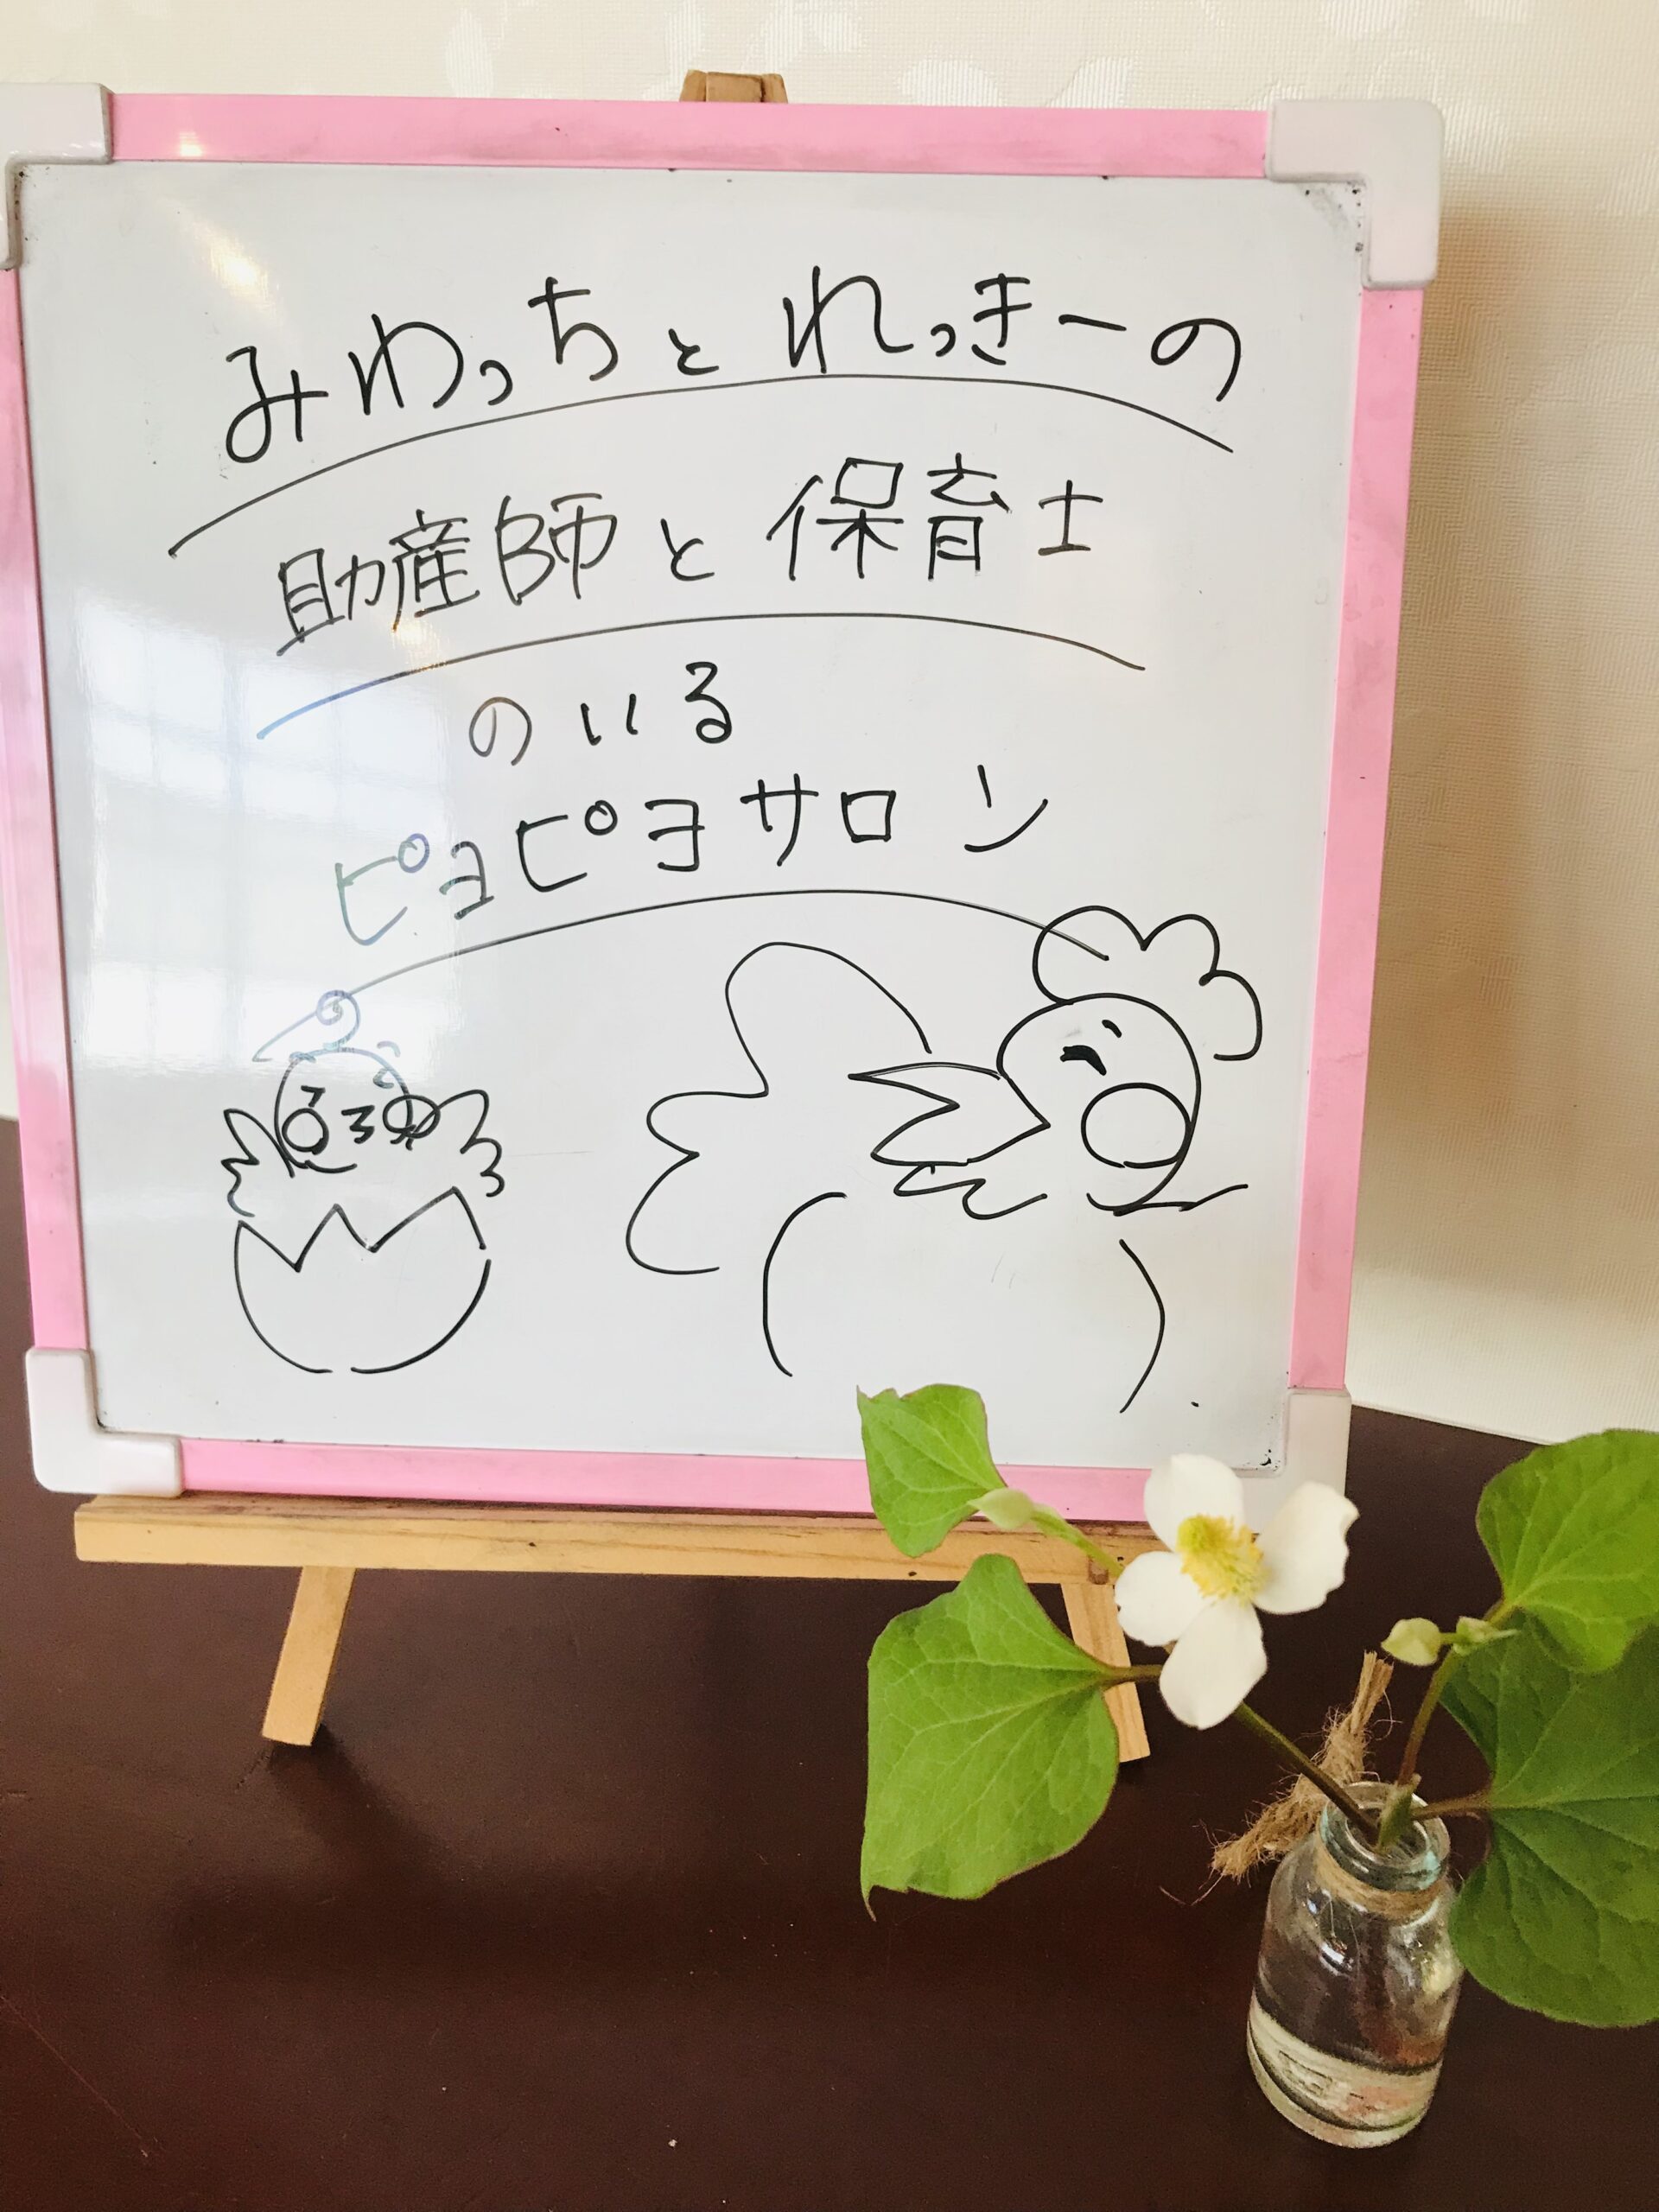 みわっちとれっきーの
助産師と保育士
のいる
ピヨピヨサロン